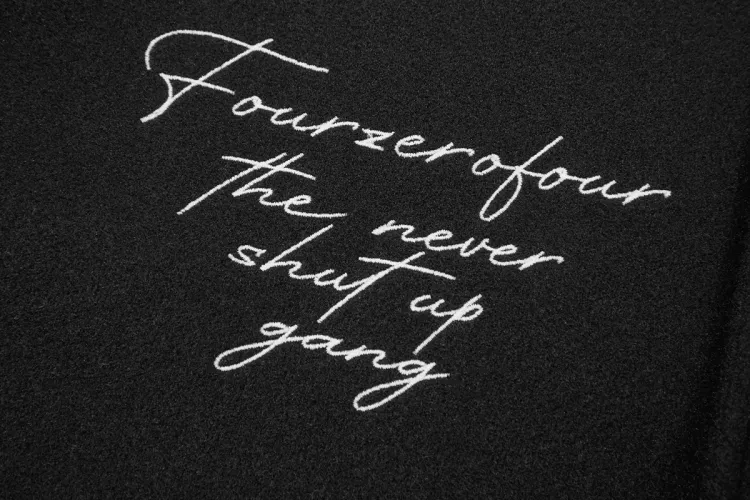 Fourzerofour
the never
shut up
gang